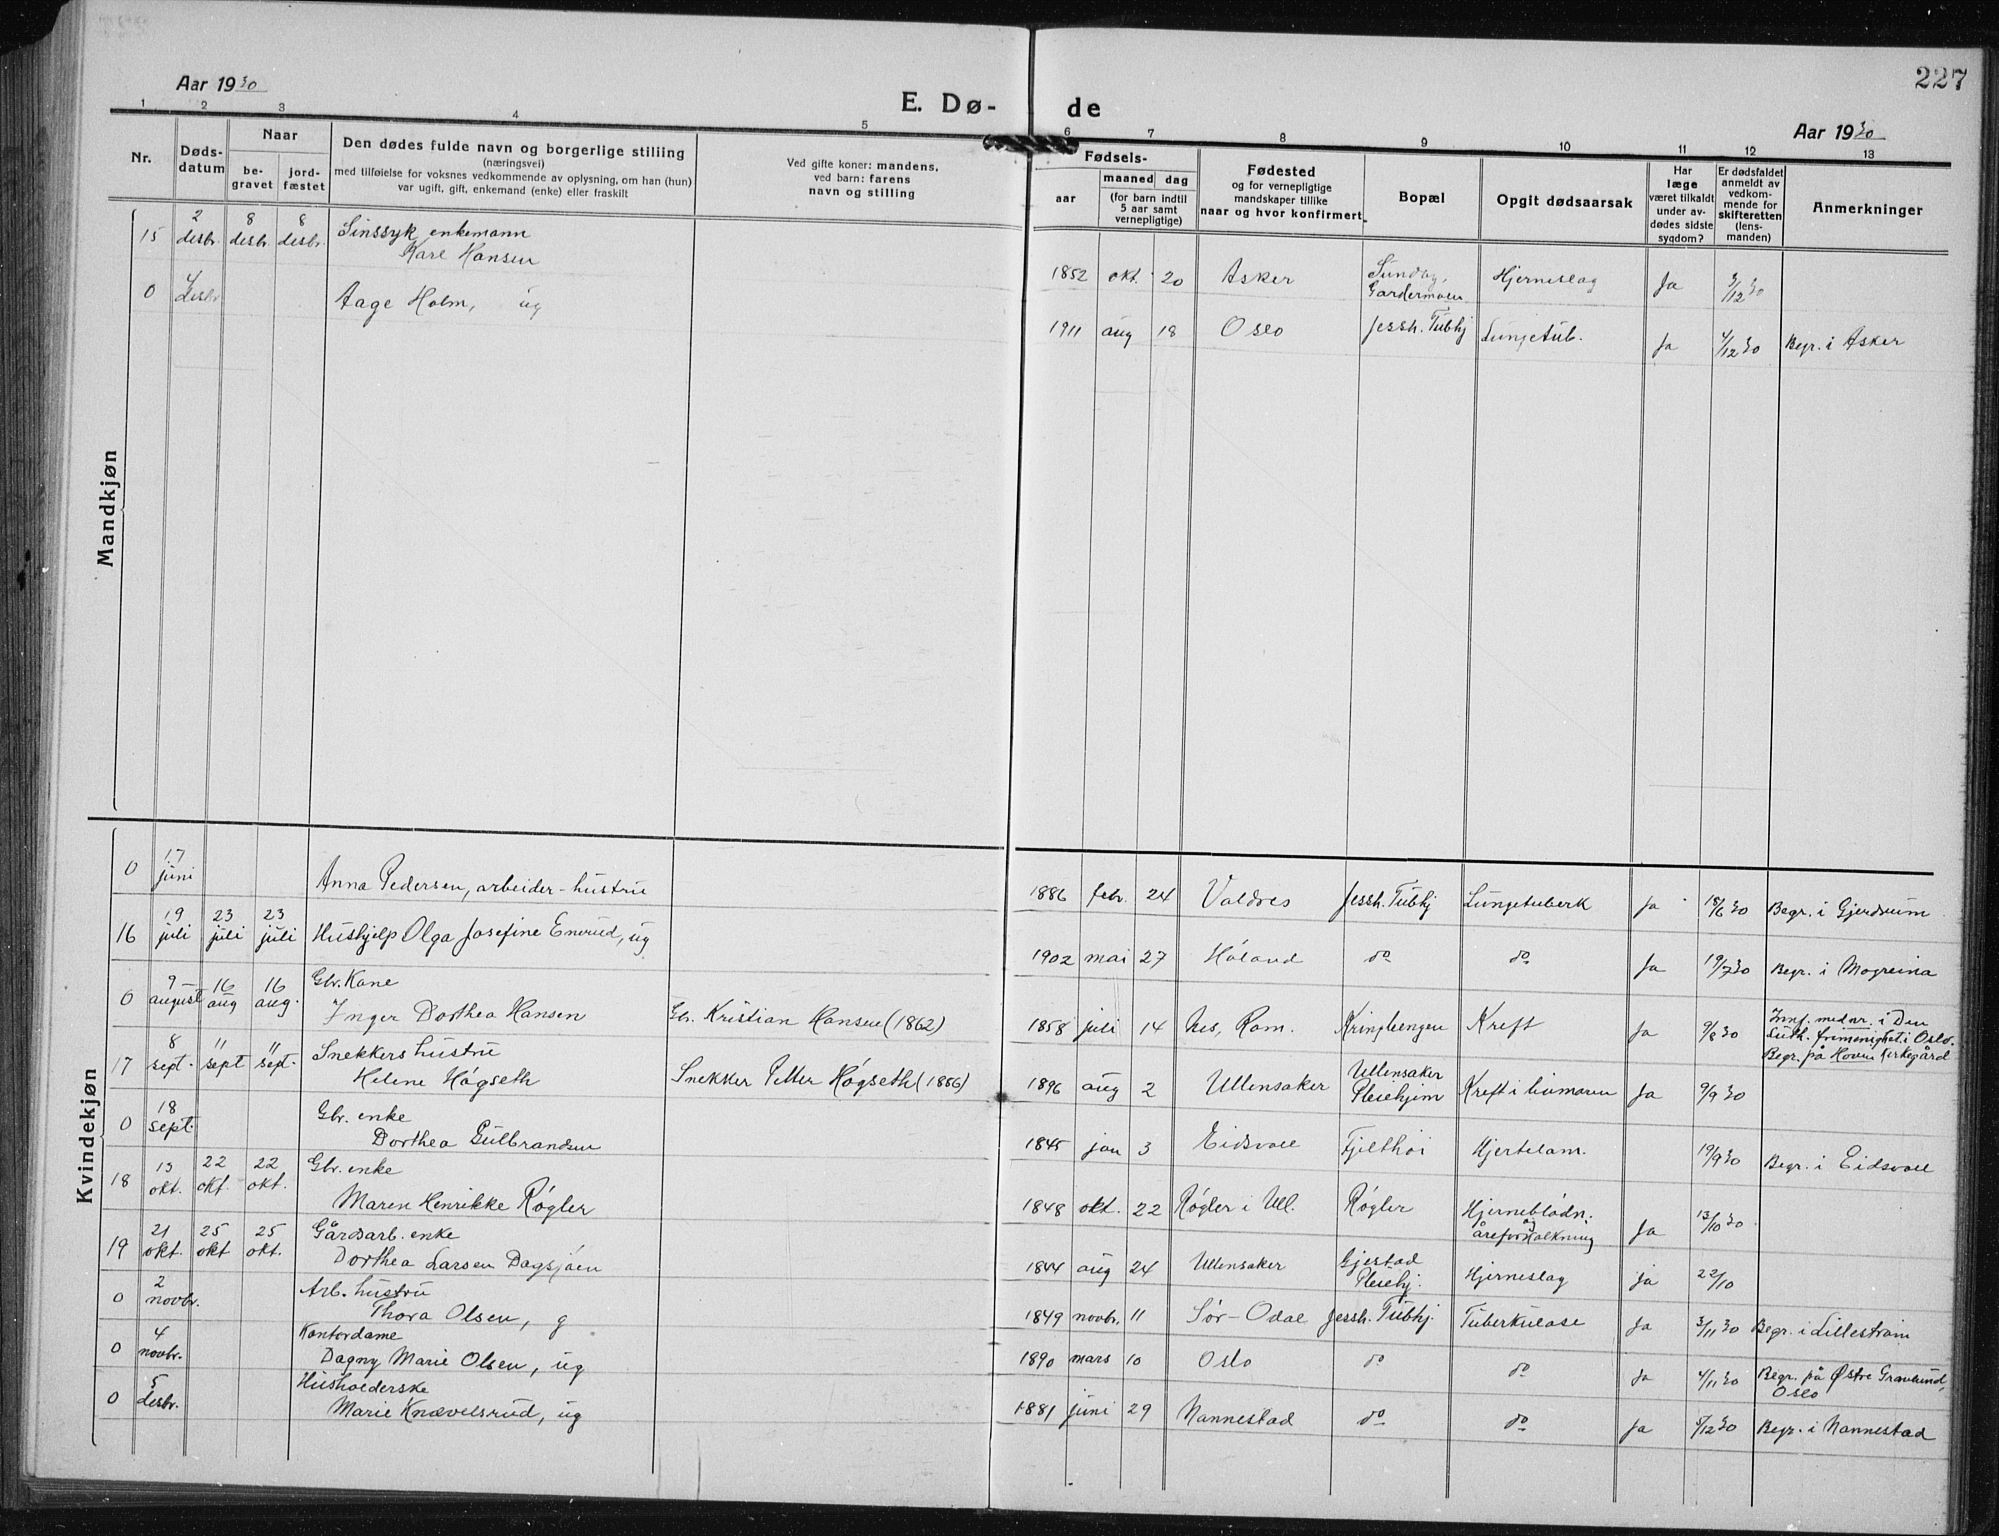 227
Aar 1930
E. Dø- de
Aar 1930
1 2 3 4 5 6 7 8 9 10 11 12 13
Nr.
Døds-
datum
Naar
be-
gravet
jord-
fæstet
Den dødes fulde navn og borgerlige stilling
(næringsvei)
med tilføielse for voksnes vedkommende av oplysning, om han (hun)
var ugift, gift, enkemand (enke) eller fraskilt
Ved gifte koner: mandens,
ved barn: farens
navn og stilling
Fødsels-
aar
maaned dag
(for barn indtil
5 aar samt
vernepligtige)
Fødested
og for vernepligtige
mandskaper tillike
naar og hvor konfirmert
Bopæl
Opgit dødsaarsak
Har
læge
været tilkaldt
under av-
dødes sidste
sygdom?
Er dødsfaldet
anmeldt av
vedkom-
mende for
skifteretten
(lens-
manden)
Anmerkninger
Mandkjøn
15 2 desbr. 8 desbr. 8 desbr. Sinssyk enkemann
Karl Hansen 1852 okt. 20 Asker Sundby, Gardermoen Hjerneslag Ja 3/12 30
0 4 desbr. Aage Holm, ug 1911 aug 18 Oslo Jessh. Tubhj Lungetub. Ja 4/12 30 Begr. i Asker
Kvindekjøn
0 17 juni Anna Pedersen, arbeider-hustru 1886 febr. 24 Valdres Jessh. Tubhj Lungetuberk Ja 18/6 30 Begr. i Gjerdrum
16 19 juli 23 juli 23 juli Hushjelp Olga Josefine Enerud, ug 1902 mai 27 Höland do do Ja 19/7 30 Begr. i Mogreina
0 9 august 16 aug 16 aug. Gbr. Kone
Inger Dorthea Hansen Gbr. Kristian Hansen (1862) 1858 juli 14 Nes, Rom. Kringlerengen Kreft Ja 9/8 30 Innf. med nr. i Den
Luth. frimenighet i Oslo.
Begr. på Hovin kirkegård
17 8 sept. 11 sept 11 sept. Snekkers hustru
Helene Høgseth Snekker Petter Høgseth (1886) 1896 aug 2 Ullensaker Ullensaker Pleiehjem Kreft i livmoren Ja 9/9 30
0 18 sept. Gbr. enke
Dorthea Gulbrandsen 1845 jan 3 Eidsvoll Fjelthøi Hjertelam. 19/9 30 Begr. i Eidsvoll
18 13 okt. 22 okt. 22 okt. Gbr. enke
Maren Henrikke Røgler 1848 okt. 22 Røgler i Ull. Røgler Hjerneblødn. og åreforkalkning Ja 13/10 30
19 21 okt. 25 okt 25 okt. Gårdsarb. enke
Dorthea Larsen Dagsjøen 1844 aug 24 Ullensaker Gjestad Pleiehj. Hjerneslag ja 22/10
0 2 novbr. Arb. hustru
Thora Olsen, g 1849 novbr. 11 Sør-Odal Jessh. Tubhj. Tuberkulose Ja 3/11 30 Begr. i Lillestrøm
0 4 novbr. Kontordame
Dagny Marie Olsen, ug 1890 mars 10 Oslo do do Ja 4/11 30 Begr. på Østre Gravlund,
Oslo
0 5 desbr. Husholderske
Marie Knævelsrud, ug 1881 juni 29 Nannestad do do Ja 5/12 30 Begr. i Nannestad